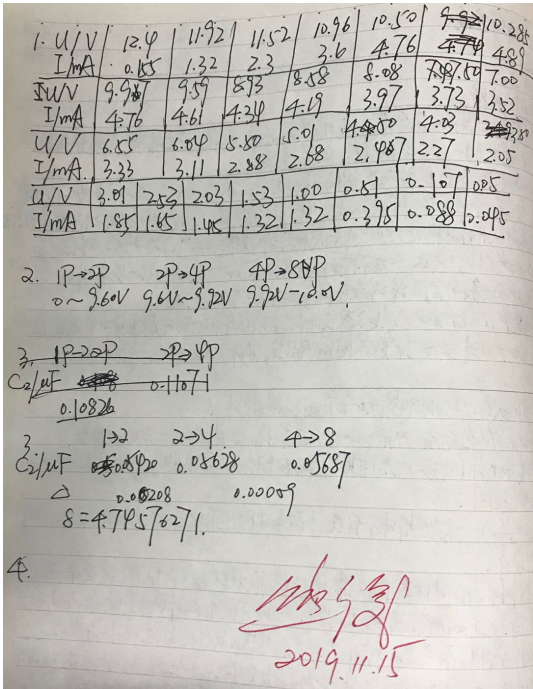 1. U/V 12.4 11.92 11.52 10.96 10.50 10.285
I/mA 0.155 1.32 2.3 3.6 4.76 4.74 4.89
U/V 9.59 8.93 8.58 8.08 7.50 7.00
I/mA 4.76 4.61 4.34 4.19 3.97 3.73 3.52
U/V 6.55 6.04 5.50 5.01 4.50 4.03
I/mA 3.33 3.11 2.88 2.68 2.27 2.05
U/V 3.01 2.53 2.03 1.53 1.00 0.51 0.107 0.05
I/mA 1.85 1.65 1.45 1.32 1.32 0.395 0.088 0.045
2. 1P→2P 2P→4P 4P→8P
0~9.60V 9.6V~9.92V 9.92V-10.0V
3. 1P→2P 2P→4P
C₂/μF 0.11071
0.10826
3. 1→2 2→4 4→8
C₂/μF 0.05420 0.05628 0.05687
△ 0.00208 0.00059
δ=4.74576271.
4.
2019.11.15